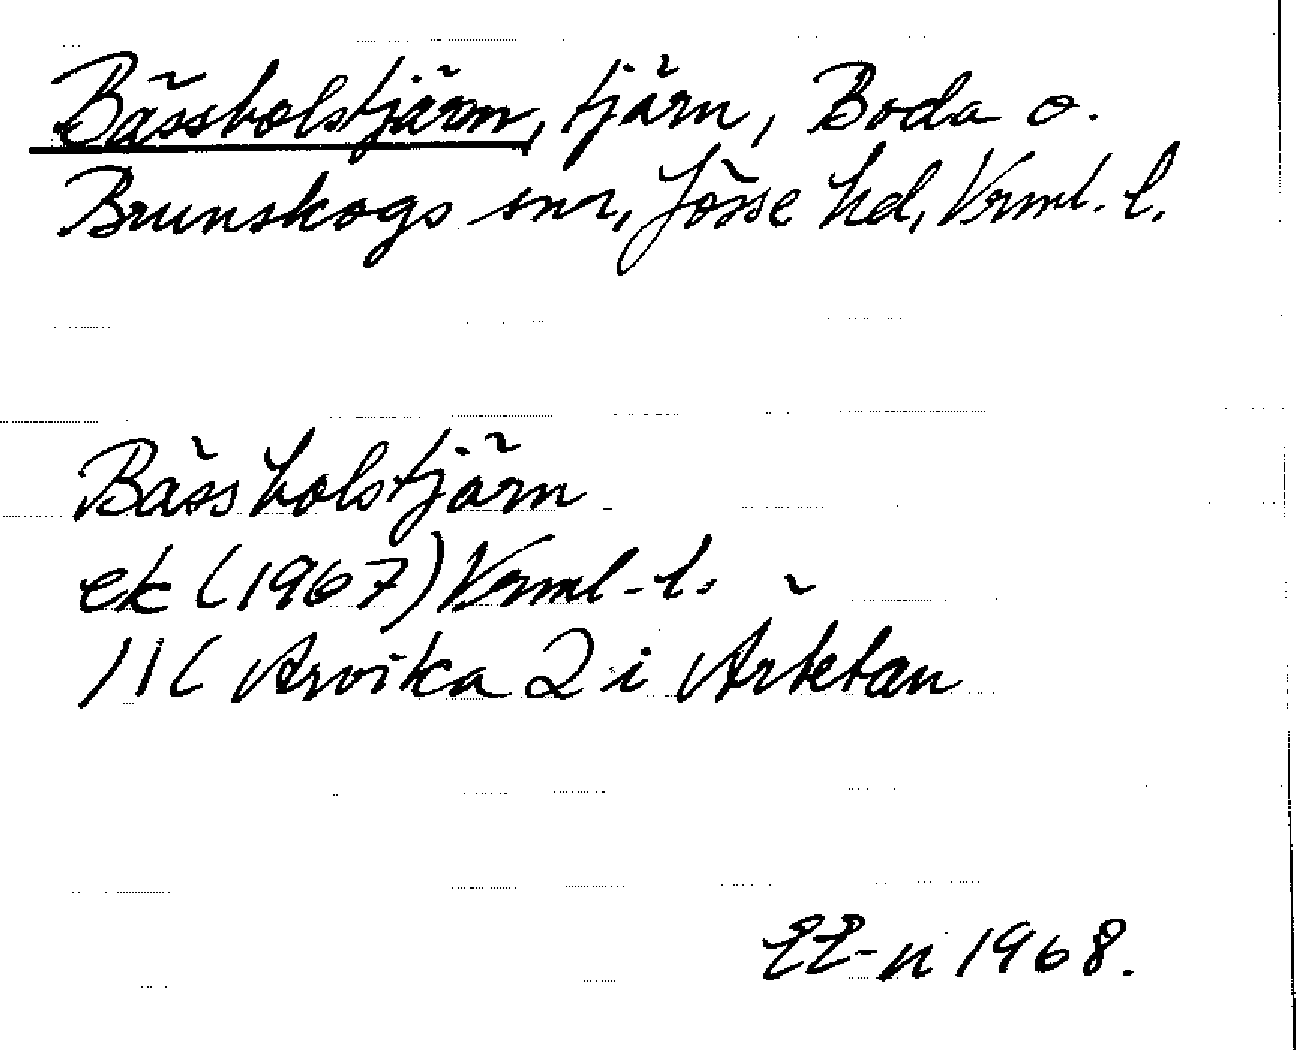 Bässholstjärn, tjärn, Boda o.
Brunskogs snr, Jösse hd, Vrml. l.
Bässholstjärn
ek (1967) Vrml. l.
11C Arvika 2 i Arketan
EE-n 1968.